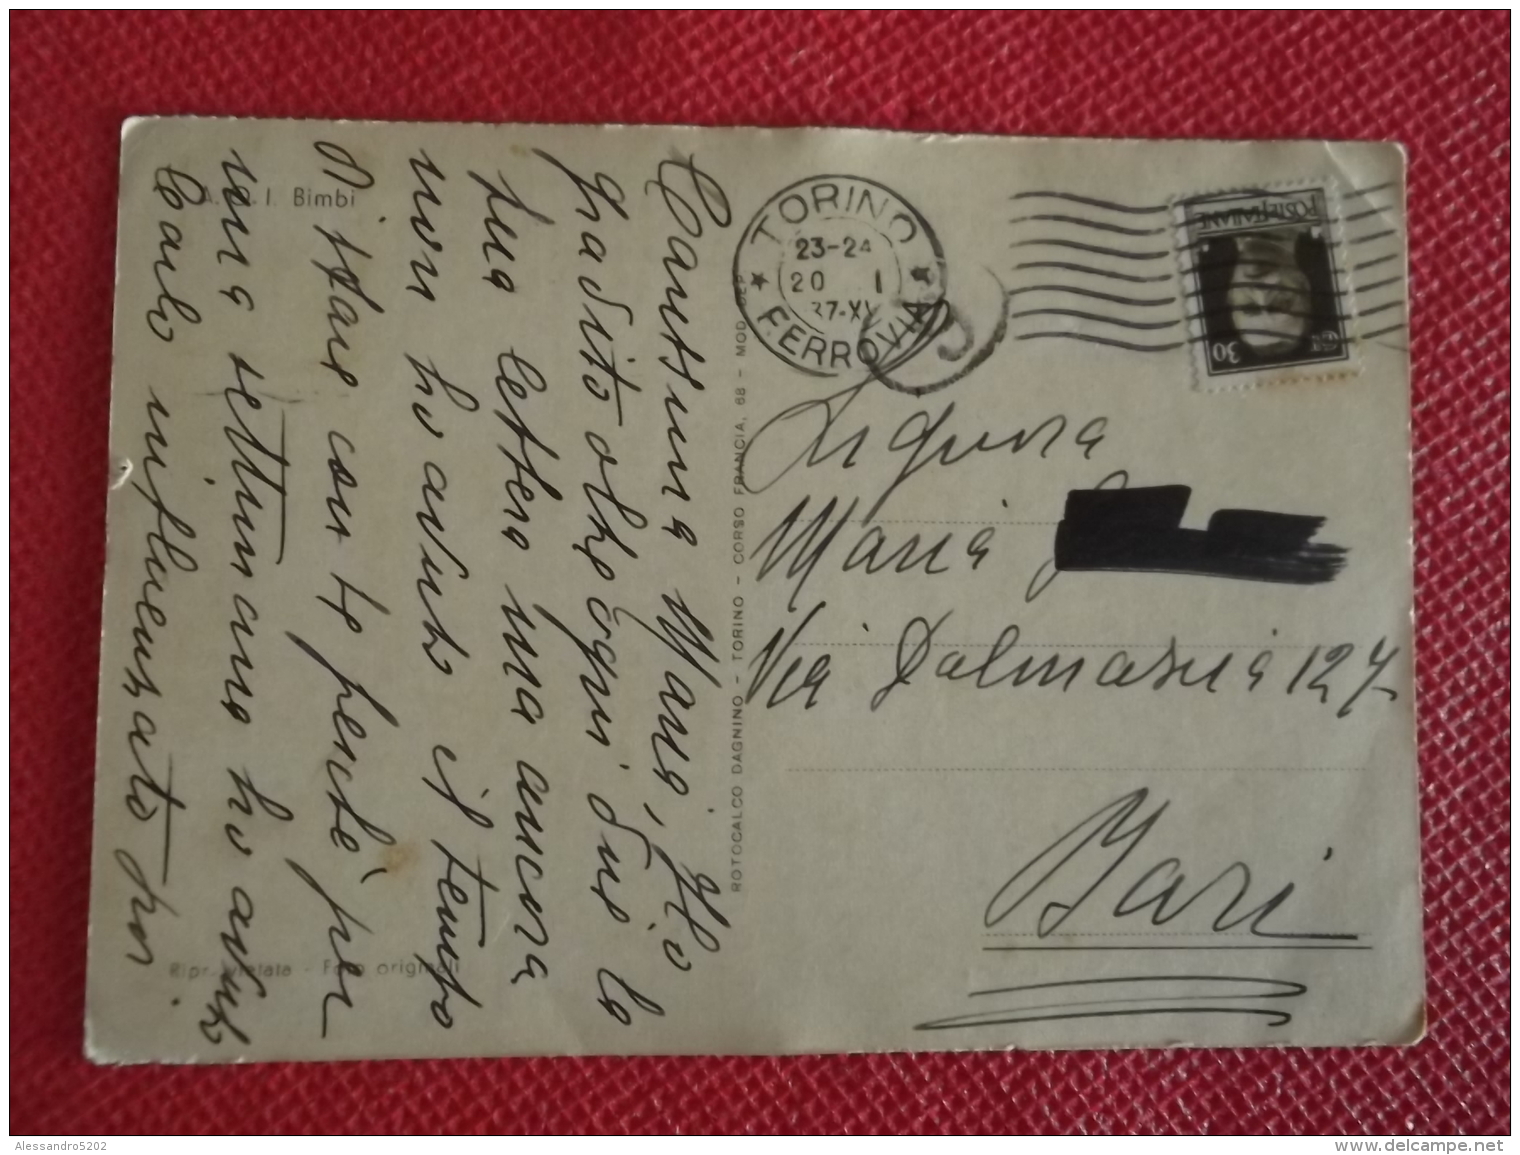 A. G. I. Bimbi
Carissima Maria, Ho
gradito oltre ogni dire la
tua lettera ma ancora
non ho avuto il tempo
di stare con te perchè per
una settimana ho avuto
Carlo influenzato poi
Ripr. vietata - Foto originali
ROTOCALCO DAGNINO - TORINO - CORSO FRANCIA, 68 - MOD. DEP.
TORINO
23-24
20 I
37-XV
FERROVIA
POSTE ITALIANE
30 CENT
Signora
Maria
Via Dalmazia 127
Bari
Alessandro5202
www.delcampe.net